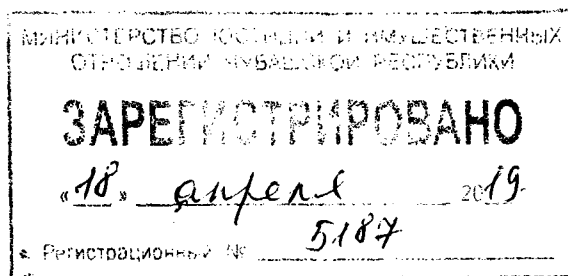 МИНИСТЕРСТВО ЮСТИЦИИ И ИМУЩЕСТВЕННЫХ
ОТНОШЕНИЙ ЧУВАШСКОЙ РЕСПУБЛИКИ
ЗАРЕГИСТРИРОВАНО
«18» апреля 2019
Регистрационный № 5187